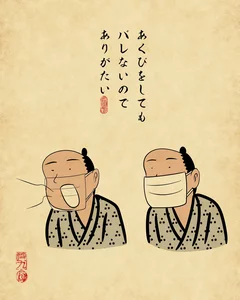 あくびをしても
バレないので
ありがたい